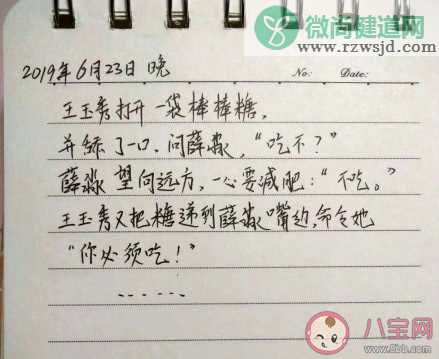 微尚健道网
www.rzwsjd.com
2019年6月23日 晚
No: Date:
王玉秀打开一袋棒棒糖,
并舔了一口.问薛淼,“吃不?”
薛淼望向远方,一心要减肥:“不吃。”
王玉秀又把糖递到薛淼嘴边,命令她
“你必须吃!”
......
八宝网
www.8bb.com